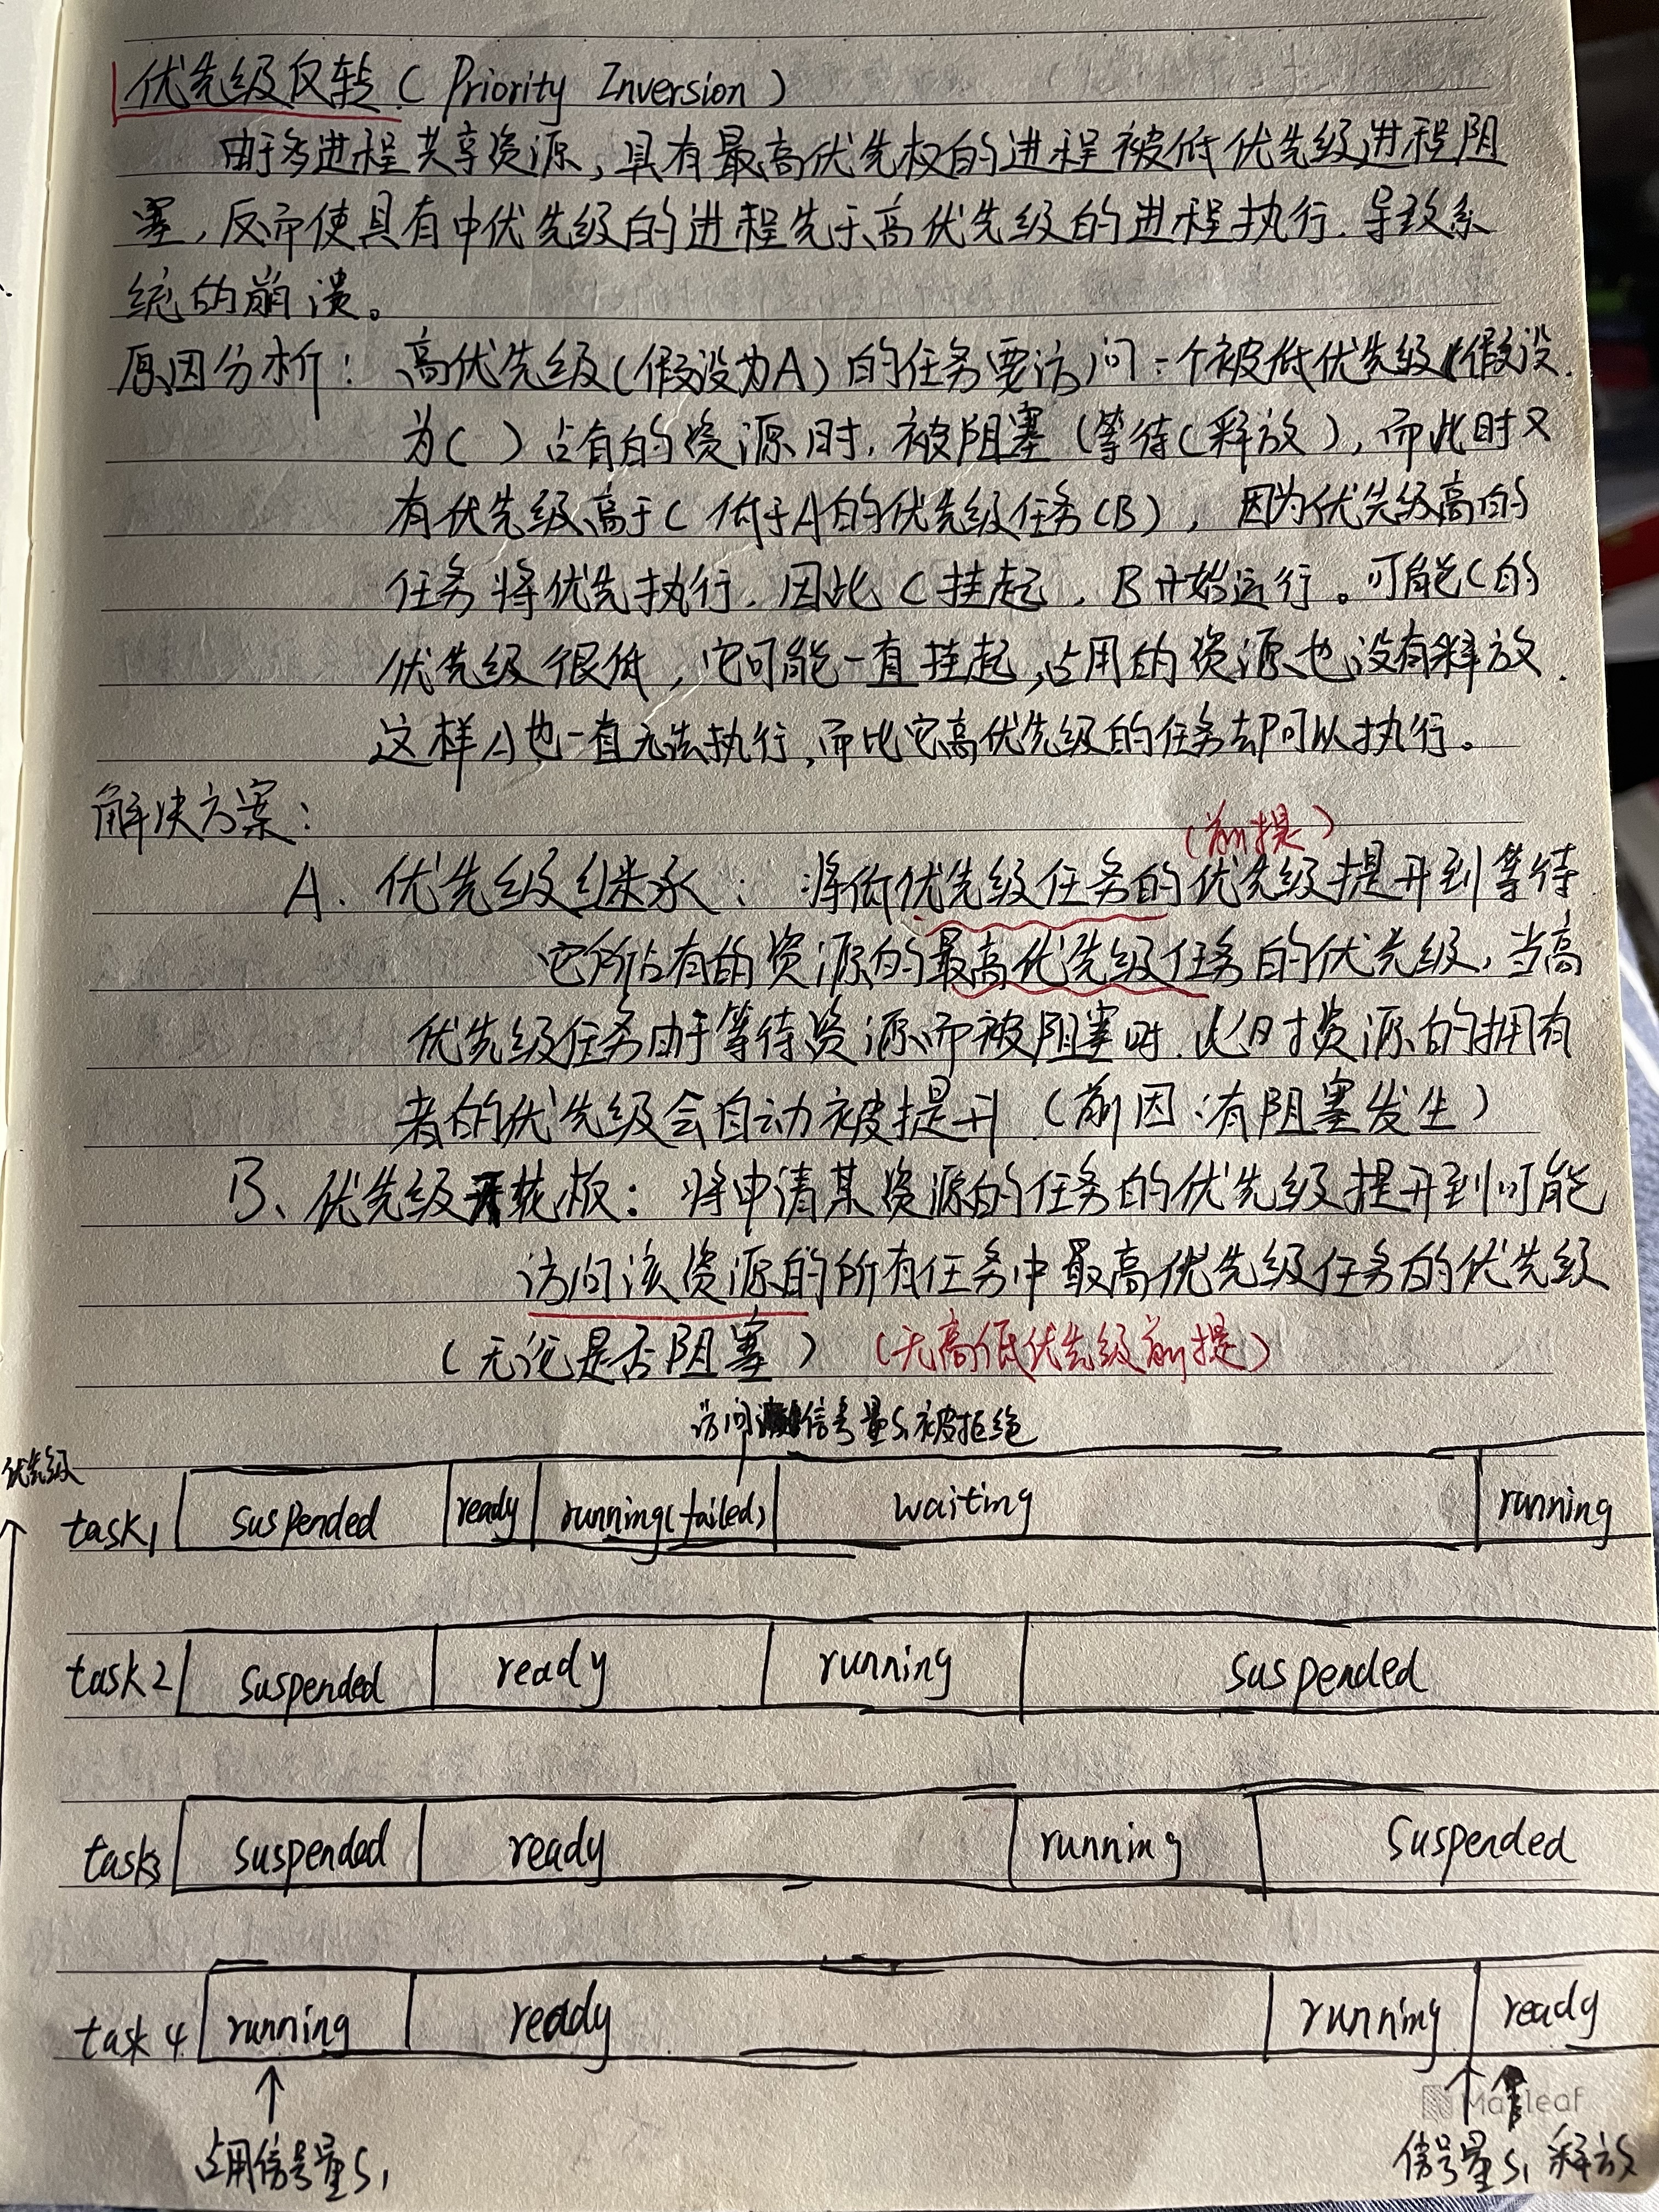 优先级反转(Priority Inversion)
由于多进程共享资源,具有最高优先权的进程被低优先级进程阻
塞,反而使具有中优先级的进程先于高优先级的进程执行.导致系
统的崩溃。
原因分析:高优先级(假设为A)的任务要访问一个被低优先级(假设
为C)占有的资源时,被阻塞(等待C释放),而此时又
有优先级高于C低于A的优先级任务(B),因为优先级高的
任务将优先执行.因此C挂起,B开始运行。可能C的
优先级很低,它可能一直挂起,占用的资源也没有释放.
这样A也一直无法执行,而比它高优先级的任务却可以执行。
解决方案:
(前提)
A.优先级继承:将低优先级任务的优先级提升到等待
它所占有的资源的最高优先级任务的优先级,当高
优先级任务由于等待资源而被阻塞时.此时资源的拥有
者的优先级会自动被提升(前因:有阻塞发生)
B、优先级天花板:将申请某资源的任务的优先级提升到可能
访问该资源的所有任务中最高优先级任务的优先级
(无论是否阻塞)(无高低优先级前提)
访问信号量S1被拒绝
优先级
task1 suspended ready running(failed) waiting running
task2 suspended ready running suspended
task3 suspended ready running suspended
task4 running ready running ready
Marleaf
占用信号量S1 信号量S1释放